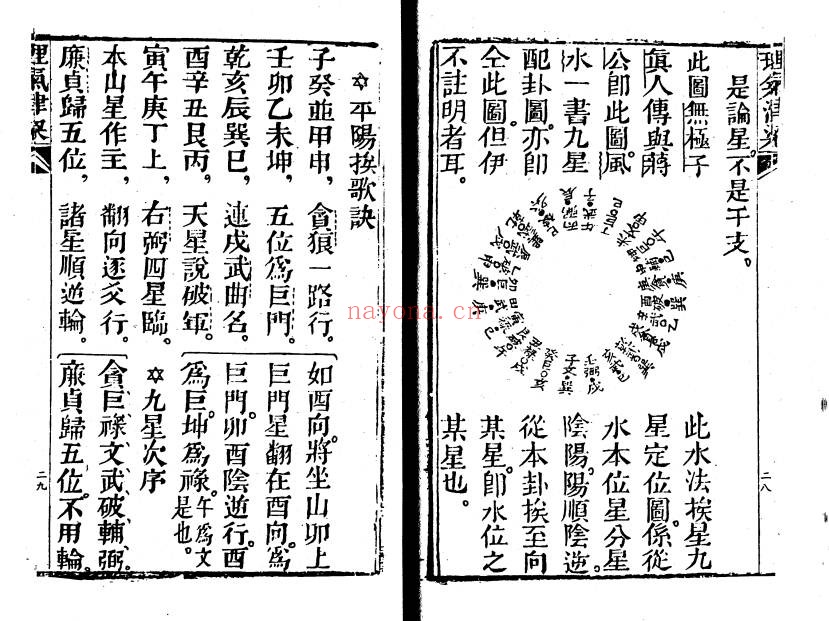 是論星。不是干支。
此圖無極子
眞人傳與蔣
公卽此圖風
水一書九星
配卦圖亦卽
仝此圖但伊
不註明者耳。
此水法挨星九
星定位圖係從
水本位星分星
陰陽陽順陰逆。
從本卦挨至向
某星卽水位之
某星也。
二八
平陽挨歌訣
子癸並甲申，貪狼一路行。
壬卯乙未坤，五位爲巨門。
乾亥辰巽巳，連戌武曲名。
酉辛丑艮丙，天星說破軍。
寅午庚丁上，右弼四星臨。
本山星作主，翻向逐爻行。
廉貞歸五位，諸星順逆輪。
如酉向將坐山卯上
巨門星翻在酉向。爲
巨門。卯酉陰逆行。酉
爲巨。坤爲祿。午爲文
是也。
九星次序
貪巨祿文武破輔弼。
廉貞歸五位。不用輪。
二九
nayona.cn